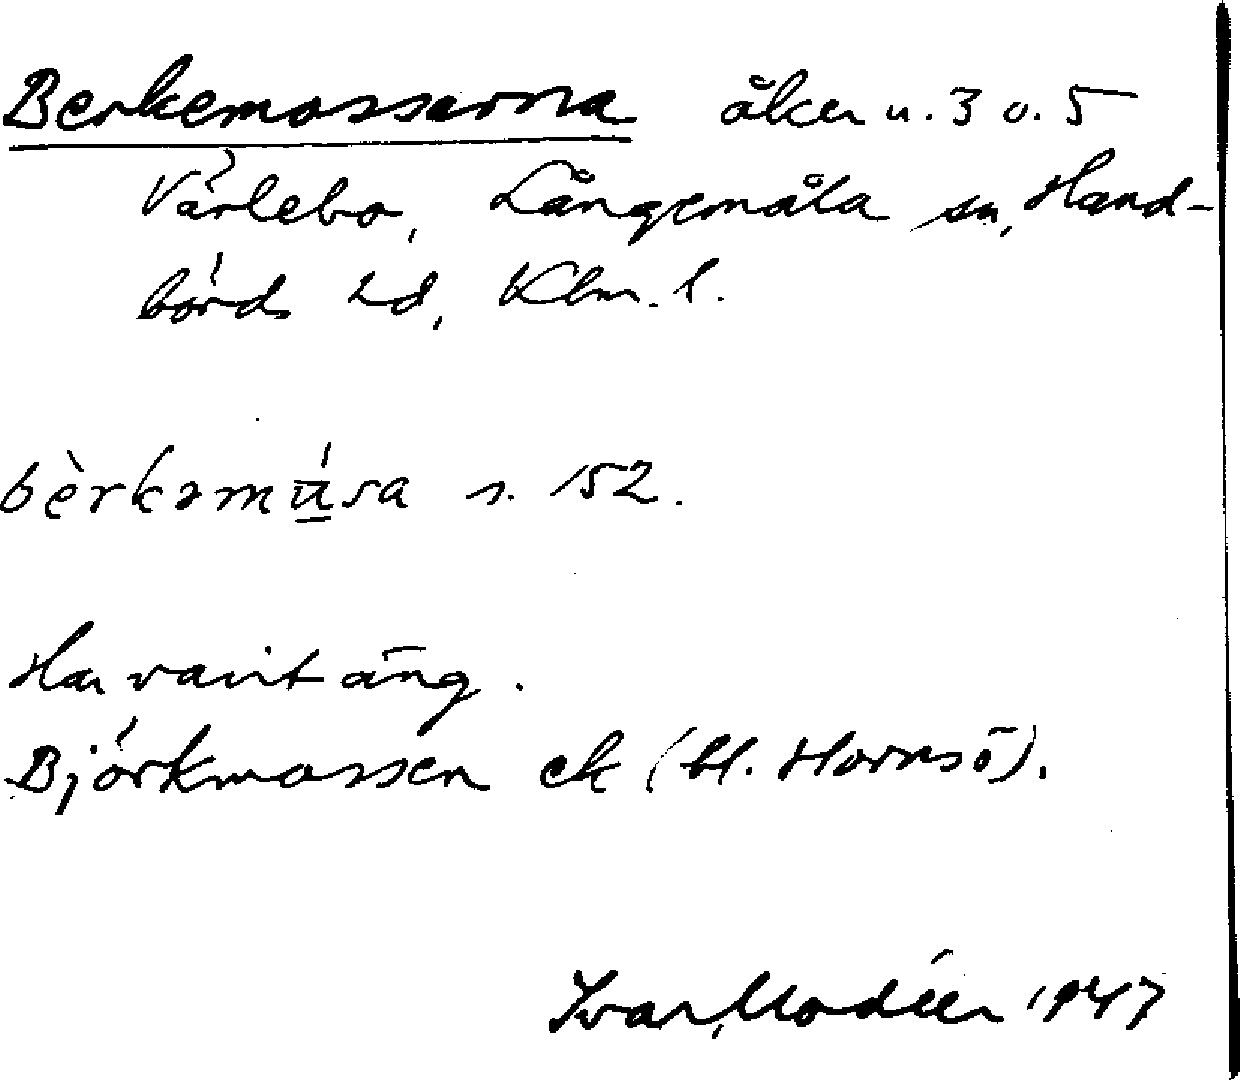 Berkemosserna åker u. 3 o. 5
Värlebo, Långemåla sn, Hand-
börds hd, Klm. l.
bèrkəmúsa s. 152.
Har varit äng.
Björkmossen ek (bl. Hornsö).
Ivar Modéer 1947